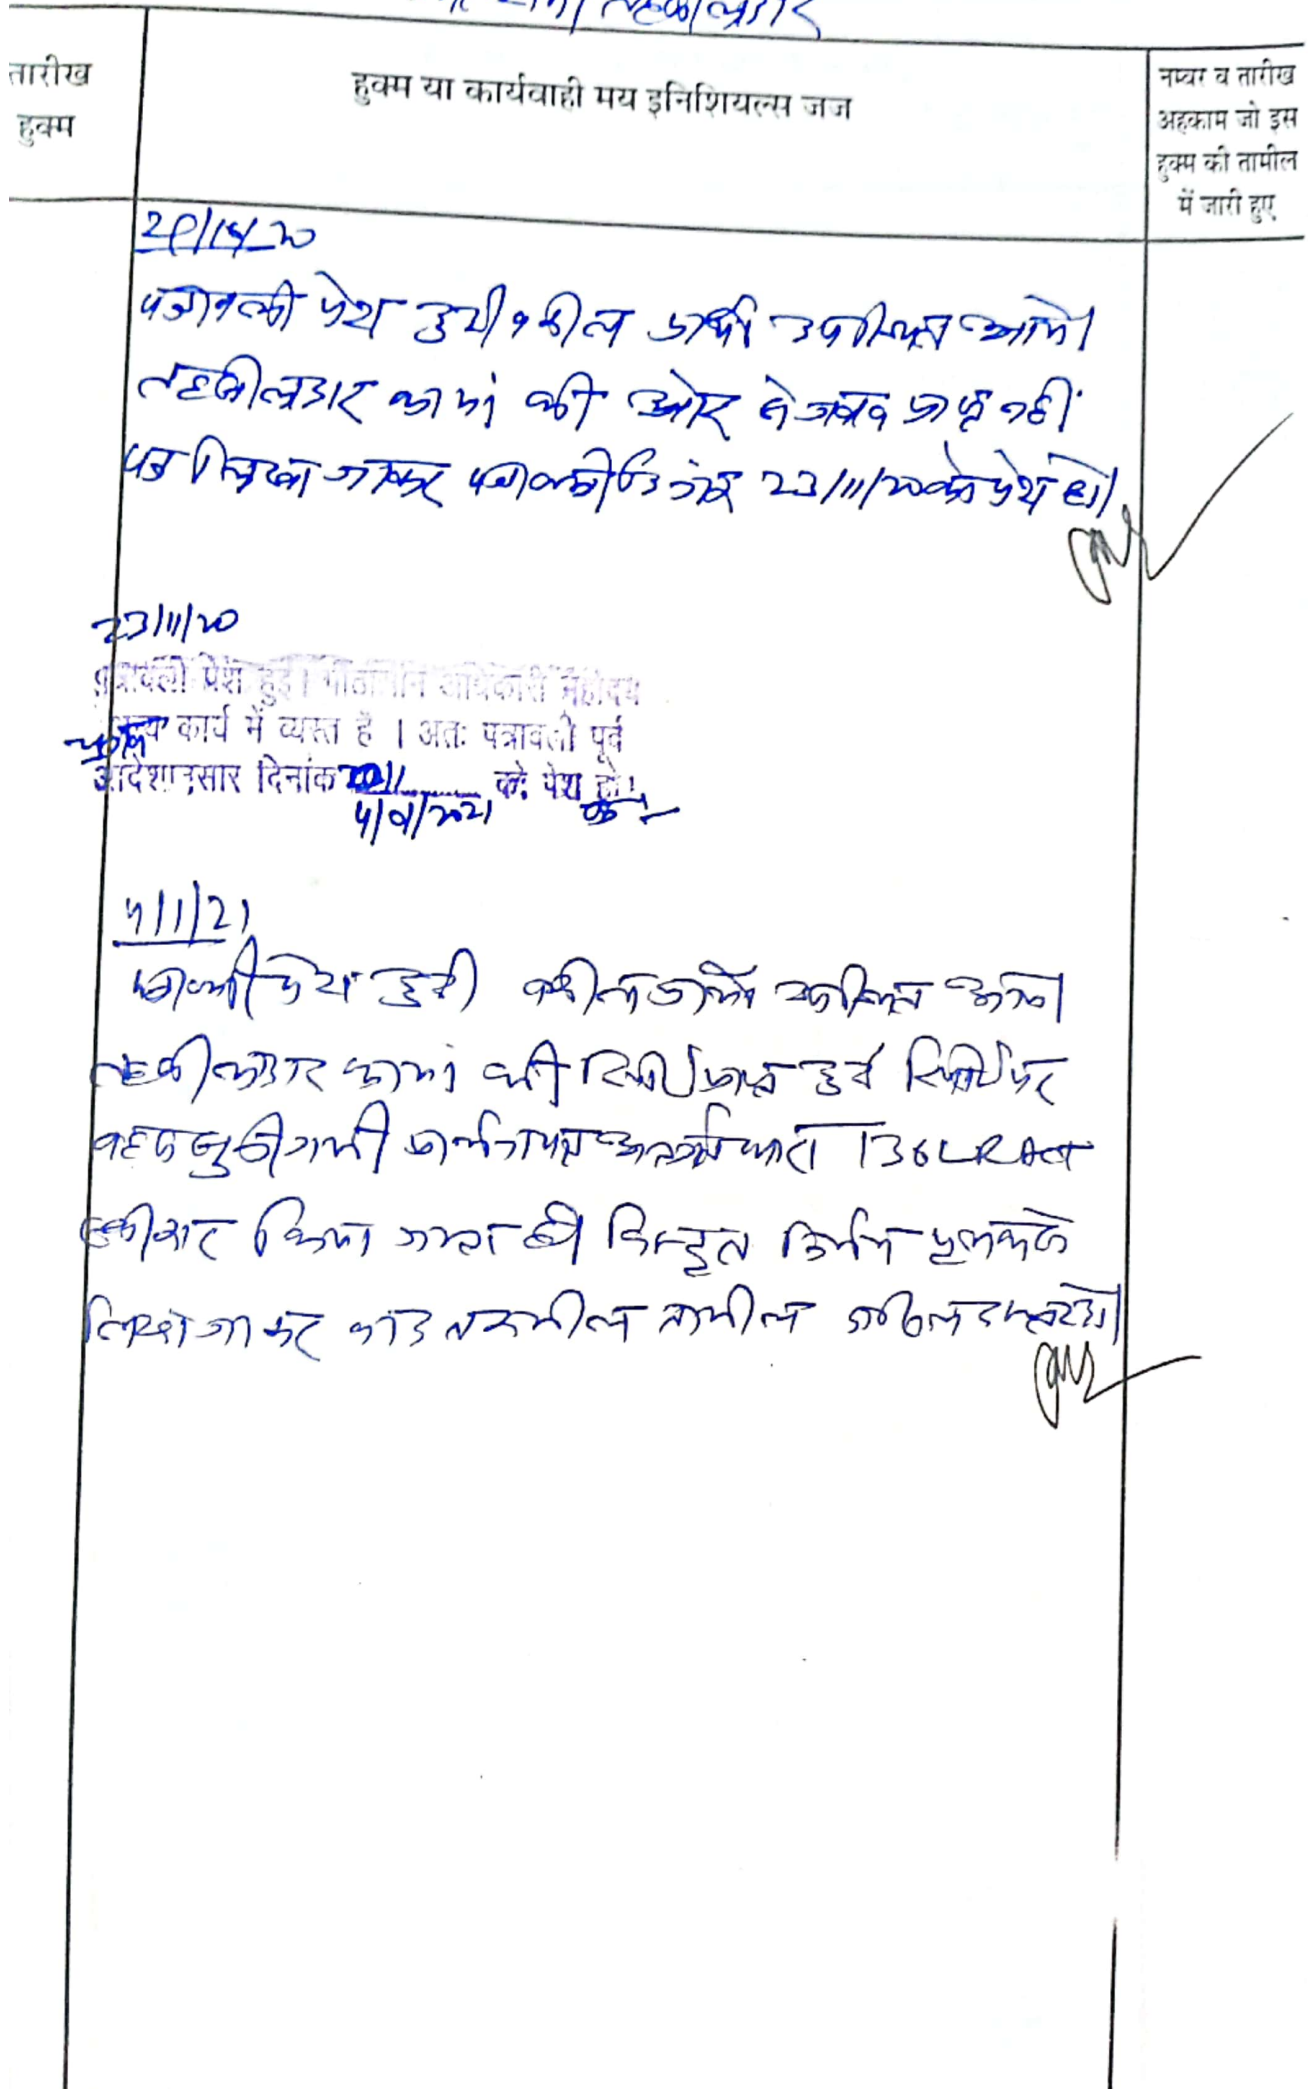 तहसीलदार
तारीख
हुक्म
हुक्म या कार्यवाही मय इनिशियल्स जज
नम्बर व तारीख
अहकाम जो इस
हुक्म की तामील
में जारी हुए
पत्रावली पेश हुयी वकील प्रार्थी उपस्थित आये।
तहसीलदार कामां की ओर से जवाब प्राप्त नहीं
पत्र लिखा जाकर पत्रावली दिनांक 23/11/20 को पेश हो।
23/11/20
पत्रावली पेश हुई। पीठासीन अधिकारी महोदय
अन्य कार्य में व्यस्त है । अतः पत्रावली पूर्व
आदेशानुसार दिनांक को पेश हो।
4/1/2021
4/1/21
पत्रावली पेश हुई वकील प्रार्थी उपस्थित आये।
तहसीलदार कामां की रिपोर्ट प्राप्त हुई रिपोर्ट पर
बहस सुनी गयी प्रार्थना पत्र अन्तर्गत धारा 136 LR Act
स्वीकार किया गया विस्तृत निर्णय पृथक से
लिखा जाकर बाद तकमील तामील दाखिल दफ्तर हो।